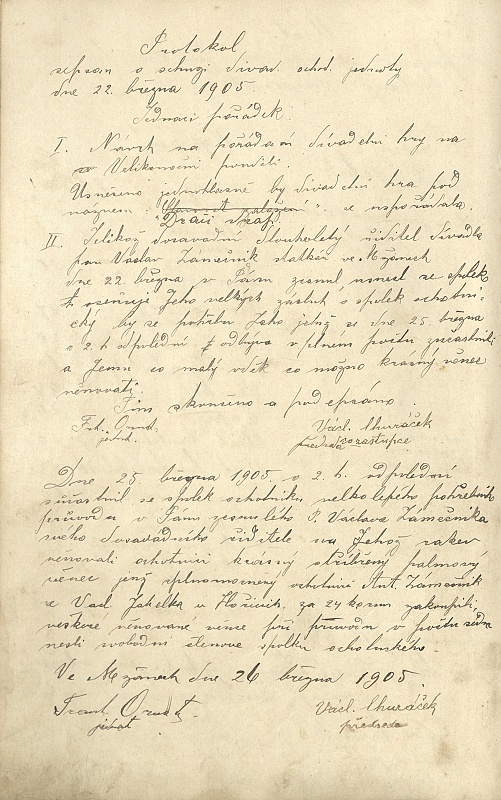 Protokol
sepsán o schuzi divad. ochot. jednoty
dne 22. března 1905.
Jednací pořádek.
I. Návrh na pořádání divadelní hry na
Velikonoční pondělí.
Usnešeno jednohlasně by divadelní hra pod
názvem: "Dračí skála". se uspořádala.
II. Jelikož dosavadní dlouholetý ředitel divadla
pan Václav Zámečník statkář ve Mžanech
dne 22. března v Pánu zesnul usnesl se spolek
oceňuje jeho velkých zásluh o spolek ochotni-
cký by se pohřbu Jeho jehož se dne 25. března
o 2. h. odpolední odbyva v plném počtu zúčastnili
a Jemu co malý vděk co možno krásný věnec
věnovati.
Tím skončeno a podepsáno.
Frt. Ornst. Václ. Churáček
jednat. předseda co zástupce
Dne 25. března 1905 o 2. h. odpolední
súčastnil se spolek ochotníku velkolepého pohřebního
průvodu v Pánu zesnulého P. Václava Zámečníka
svého dosavadního ředitele na Jehož rakev
věnovali ochotníci krásný stříbřený palmový
věnec jenž splnomocnený ochotník Ant. Zámečník
ve Vád. Jakelka v Hořicích, za 24 korun zakoupili,
veškeré věnované věnce při průvodu v počtu sedm
nesli svobodní členové spolku ochotnského.
Ve Mžanech dne 26 března 1905.
Frant. Ornst. Václ. Churáček
jednat. předseda